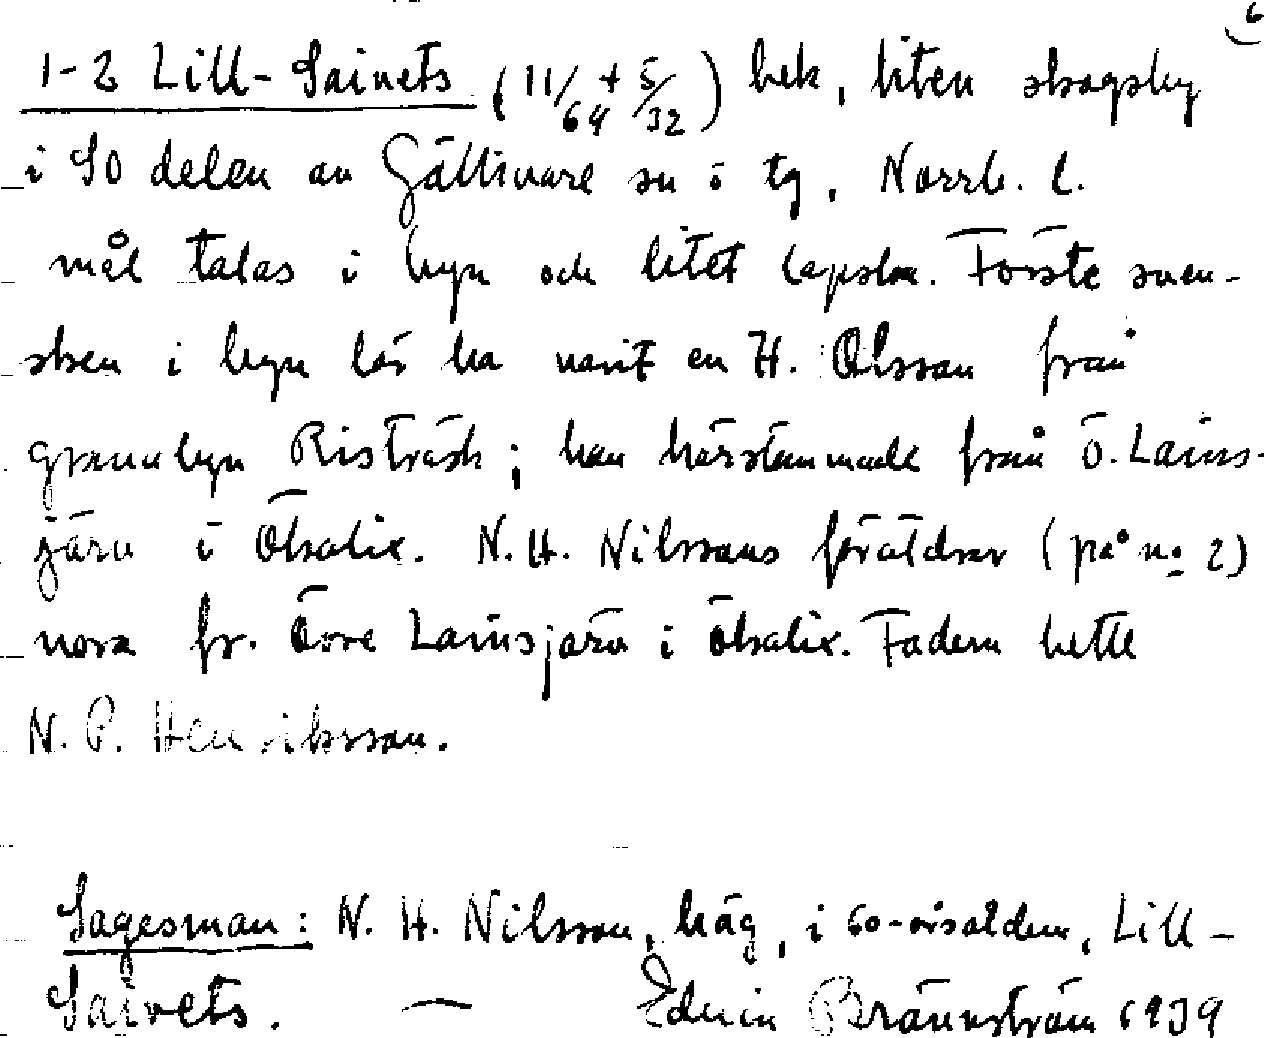 6
1-2 Lill-Saivets (11/64 + 5/32) bek, liten skogsby
i SO delen av Gällivare sn i tg, Norrb. l.
mål talas i byn och litet lapska. Förste sven-
sken i byn lär ha varit en H. Olsson från
grannbyn Risträsk; han härstammade från Ö. Lains-
järv i Ökalix. N. H. Nilssons föräldrar (på no 2)
vora fr. Övre Lainsjärv i Ökalix. Fadern hette
N. P. Henriksson.
Sagesman: N. H. Nilsson, häg, i 60-årsåldern, Lill-
Saivets. — Edvin Brännström 1939